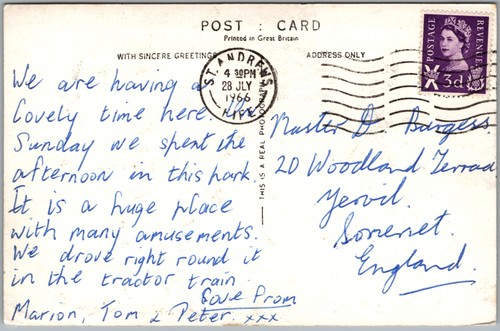 POST : CARD
Printed in Great Britain
WITH SINCERE GREETINGS
ADDRESS ONLY
ST. ANDREWS
4 30PM
28 JLY
1966
FIFE
POSTAGE
REVENUE
3d
THIS IS A REAL PHOTOGRAPH
We are having a
lovely time here. On
Sunday we spent the
afternoon in this park.
It is a huge place
with many amusements.
We drove right round it
in the tractor train
Love from
Marion, Tom & Peter. xxx
Master D Burgess
20 Woodland Terrad
Yeovil.
Somerset.
England.